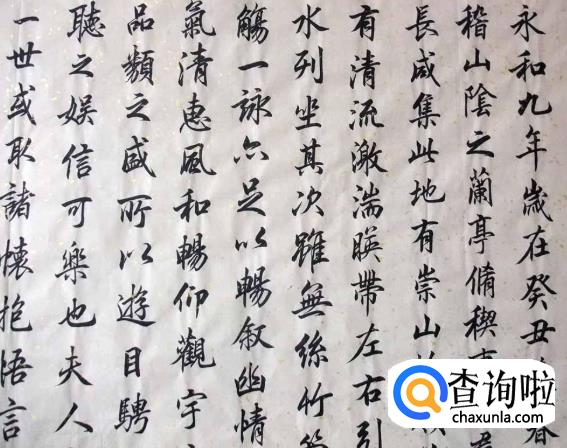 永和九年歲在癸丑春
稽山陰之蘭亭脩稧事
長咸集此地有崇山
有清流激湍暎帶左右引
水列坐其次雖無絲竹管
觴一詠亦足以暢叙幽情
氣清惠風和暢仰觀宇
品類之盛所以遊目騁
聽之娛信可樂也夫人
一世或取諸懷抱悟言
查询啦
chaxunla.com